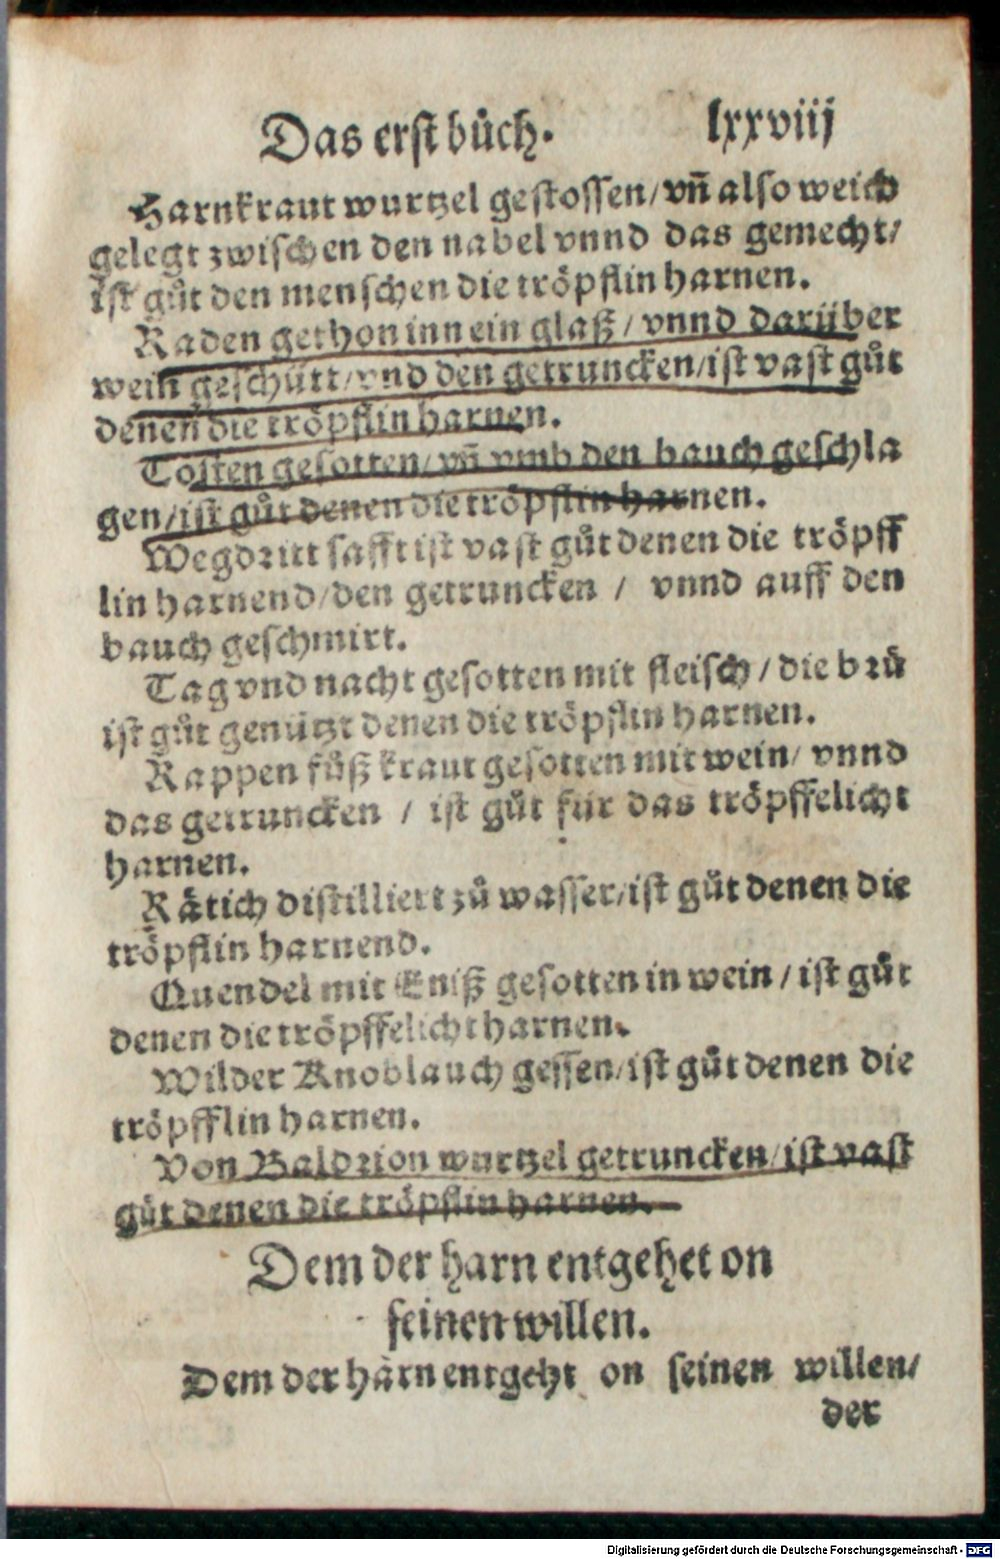 Das erst bůch. lxxviij
Harnkraut wurtzel gestossen/vñ also weich
gelegt zwischen den nabel vnnd das gemecht/
ist gůt den menschen die tröpflin harnen.
Raden gethon inn ein glaß/vnnd darüber
wein geschütt/vnd den getruncken/ist vast gůt
denen die tröpflin harnen.
Tosten gesotten/vñ vmb den bauch geschla
gen/ist gůt denen die tröpflin harnen.
Wegdritt safft ist vast gůt denen die tröpff
lin harnend/den getruncken / vnnd auff den
bauch geschmirt.
Tag vnd nacht gesotten mit fleisch/die brů
ist gůt genützt denen die tröpflin harnen.
Rappen fůß kraut gesotten mit wein/ vnnd
das getruncken / ist gůt für das tröpffelicht
harnen.
Rätich distilliert zů wasser/ist gůt denen die
tröpflin harnend.
Quendel mit Eniß gesotten in wein/ist gůt
denen die tröpffelicht harnen.
Wilder Knoblauch gessen/ist gůt denen die
tröpfflin harnen.
Von Baldrion wurtzel getruncken/ist vast
gůt denen die tröpflin harnen.
Dem der harn entgehet on
seinen willen.
Dem der harn entgeht on seinen willen/
der
Digitalisierung gefördert durch die Deutsche Forschungsgemeinschaft - DFG